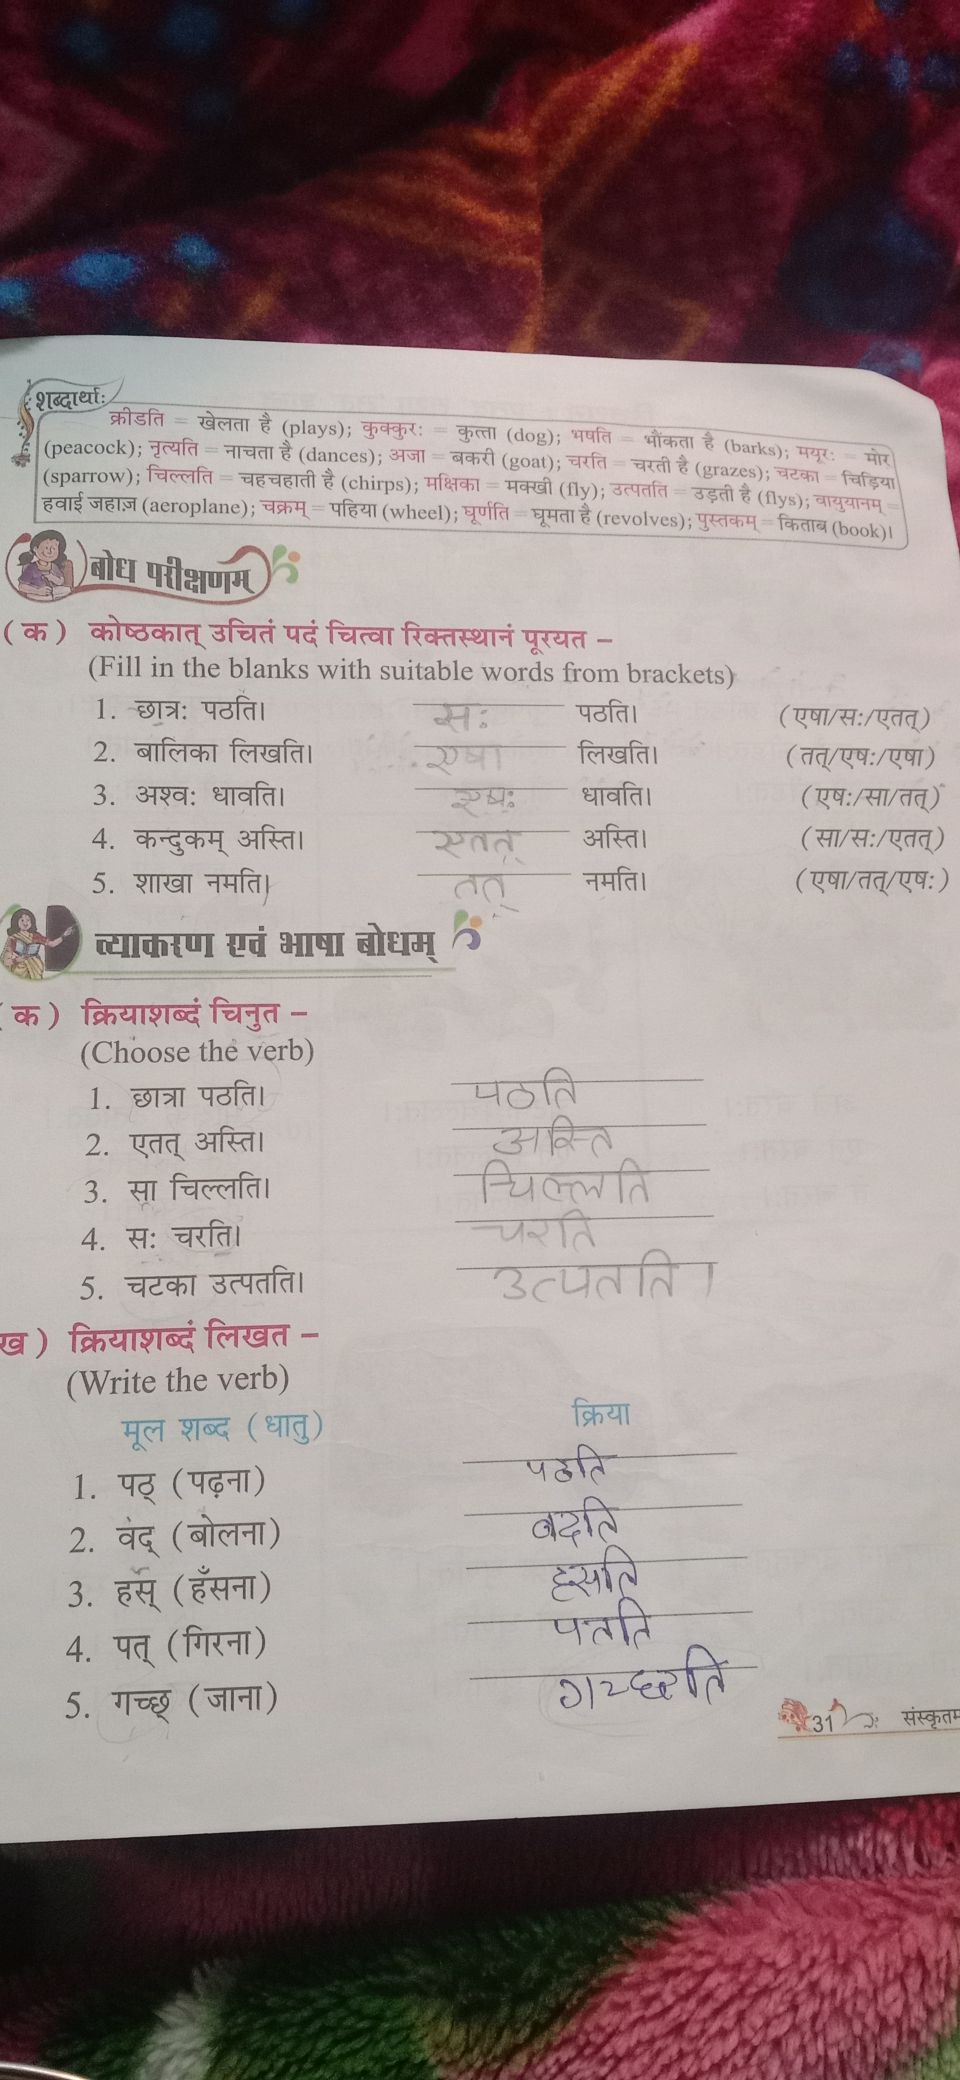 शब्दार्थाः
क्रीडति = खेलता है (plays); कुक्कुरः = कुत्ता (dog); भषति = भौंकता है (barks); मयूरः = मोर
(peacock); नृत्यति = नाचता है (dances); अजा = बकरी (goat); चरति = चरती है (grazes); चटका = चिड़िया
(sparrow); चिल्लति = चहचहाती है (chirps); मक्षिका = मक्खी (fly); उत्पतति = उड़ती है (flys); वायुयानम् =
हवाई जहाज़ (aeroplane); चक्रम् = पहिया (wheel); घूर्णति = घूमता है (revolves); पुस्तकम् = किताब (book)।
बोध परीक्षणम्
(क) कोष्ठकात् उचितं पदं चित्वा रिक्तस्थानं पूरयत –
(Fill in the blanks with suitable words from brackets)
1. छात्रः पठति। सः पठति। (एषा/सः/एतत्)
2. बालिका लिखति। एषा लिखति। (तत्/एषः/एषा)
3. अश्वः धावति। एषः धावति। (एषः/सा/तत्)
4. कन्दुकम् अस्ति। एतत् अस्ति। (सा/सः/एतत्)
5. शाखा नमति। तत् नमति। (एषा/तत्/एषः)
व्याकरण एवं भाषा बोधम्
क) क्रियाशब्दं चिनुत –
(Choose the verb)
1. छात्रा पठति। पठति
2. एतत् अस्ति। अस्ति
3. सा चिल्लति। चिल्लति
4. सः चरति। चरति
5. चटका उत्पतति। उत्पतति।
ख) क्रियाशब्दं लिखत –
(Write the verb)
मूल शब्द (धातु) क्रिया
1. पठ् (पढ़ना) पठति
2. वद् (बोलना) वदति
3. हस् (हँसना) हसति
4. पत् (गिरना) पतति
5. गच्छ् (जाना) गच्छति
31 संस्कृतम